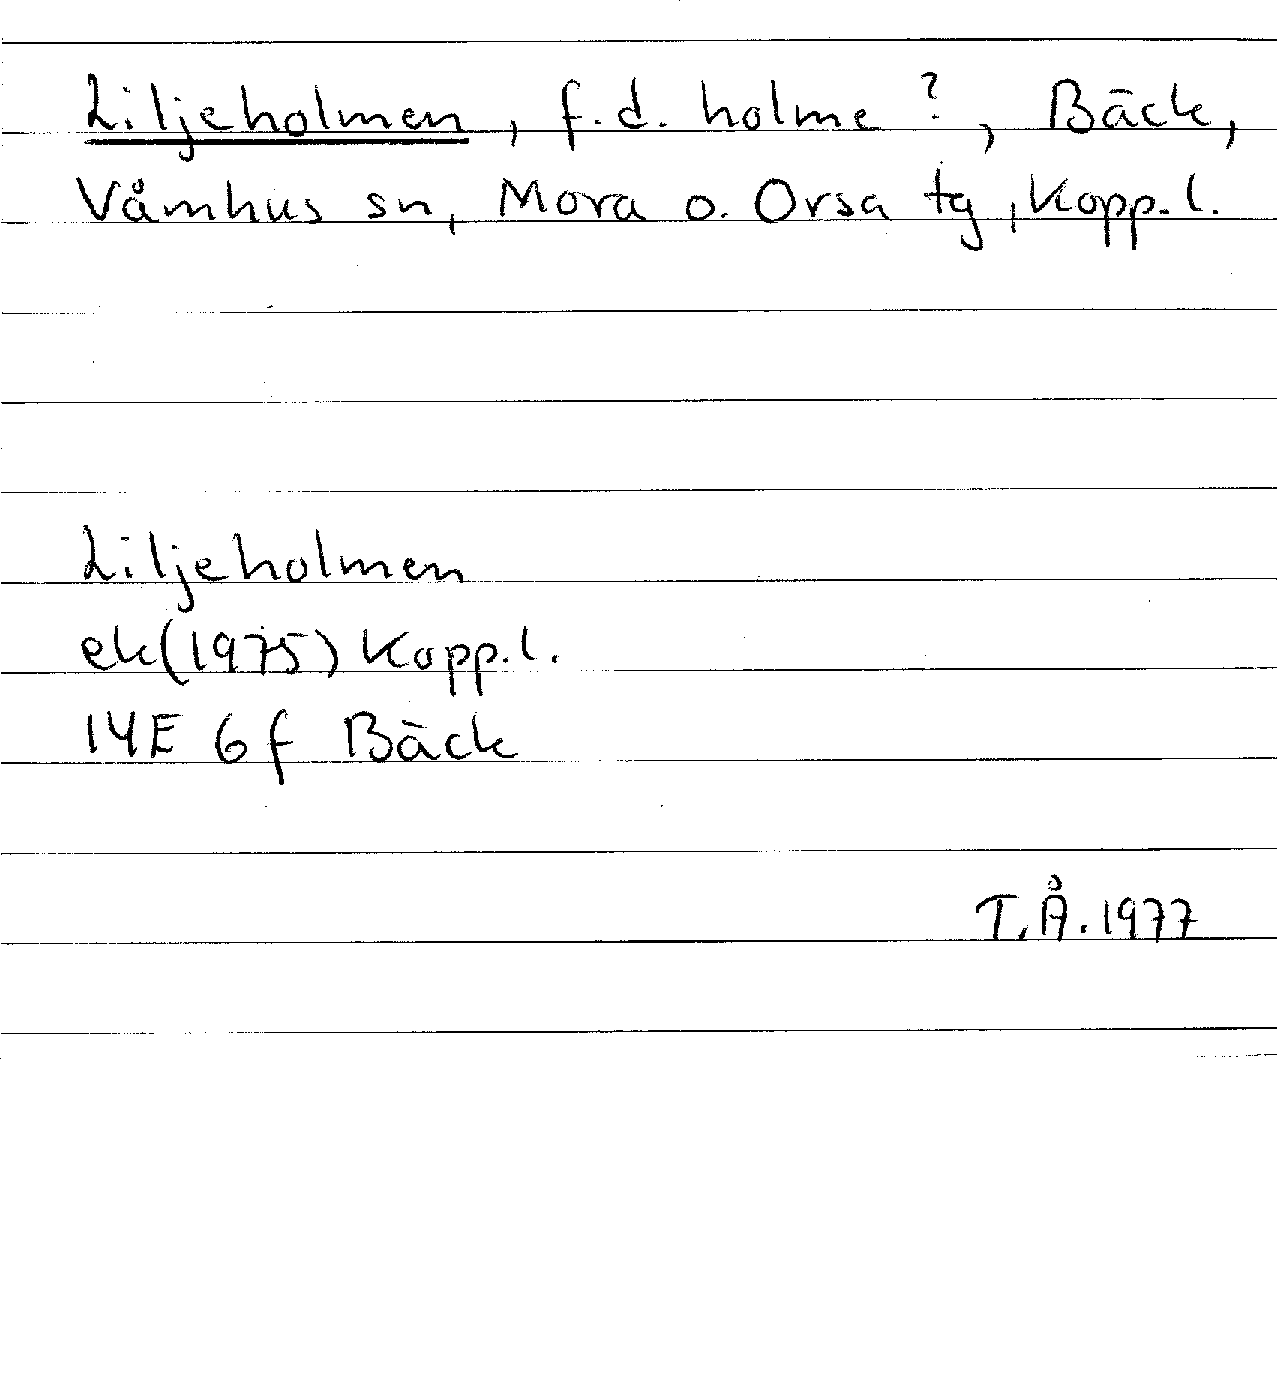 Liljeholmen, f.d. holme?, Bäck,
Våmhus sn, Mora o. Orsa tg, Kopp. l.
Liljeholmen
ek(1975) Kopp. l.
14E 6f Bäck
T.Å. 1977